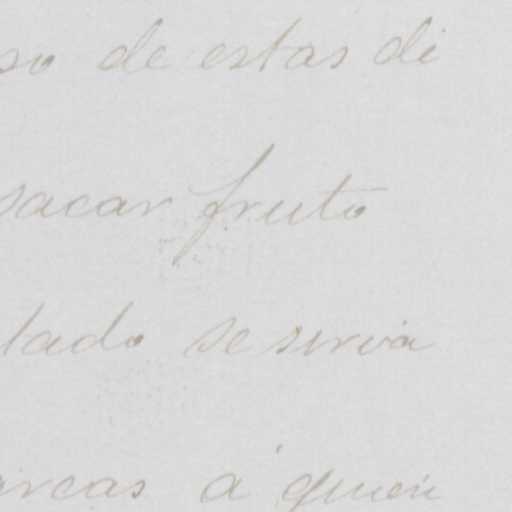 so de estas di
sacar fruto
lado se servia
arcas á quien